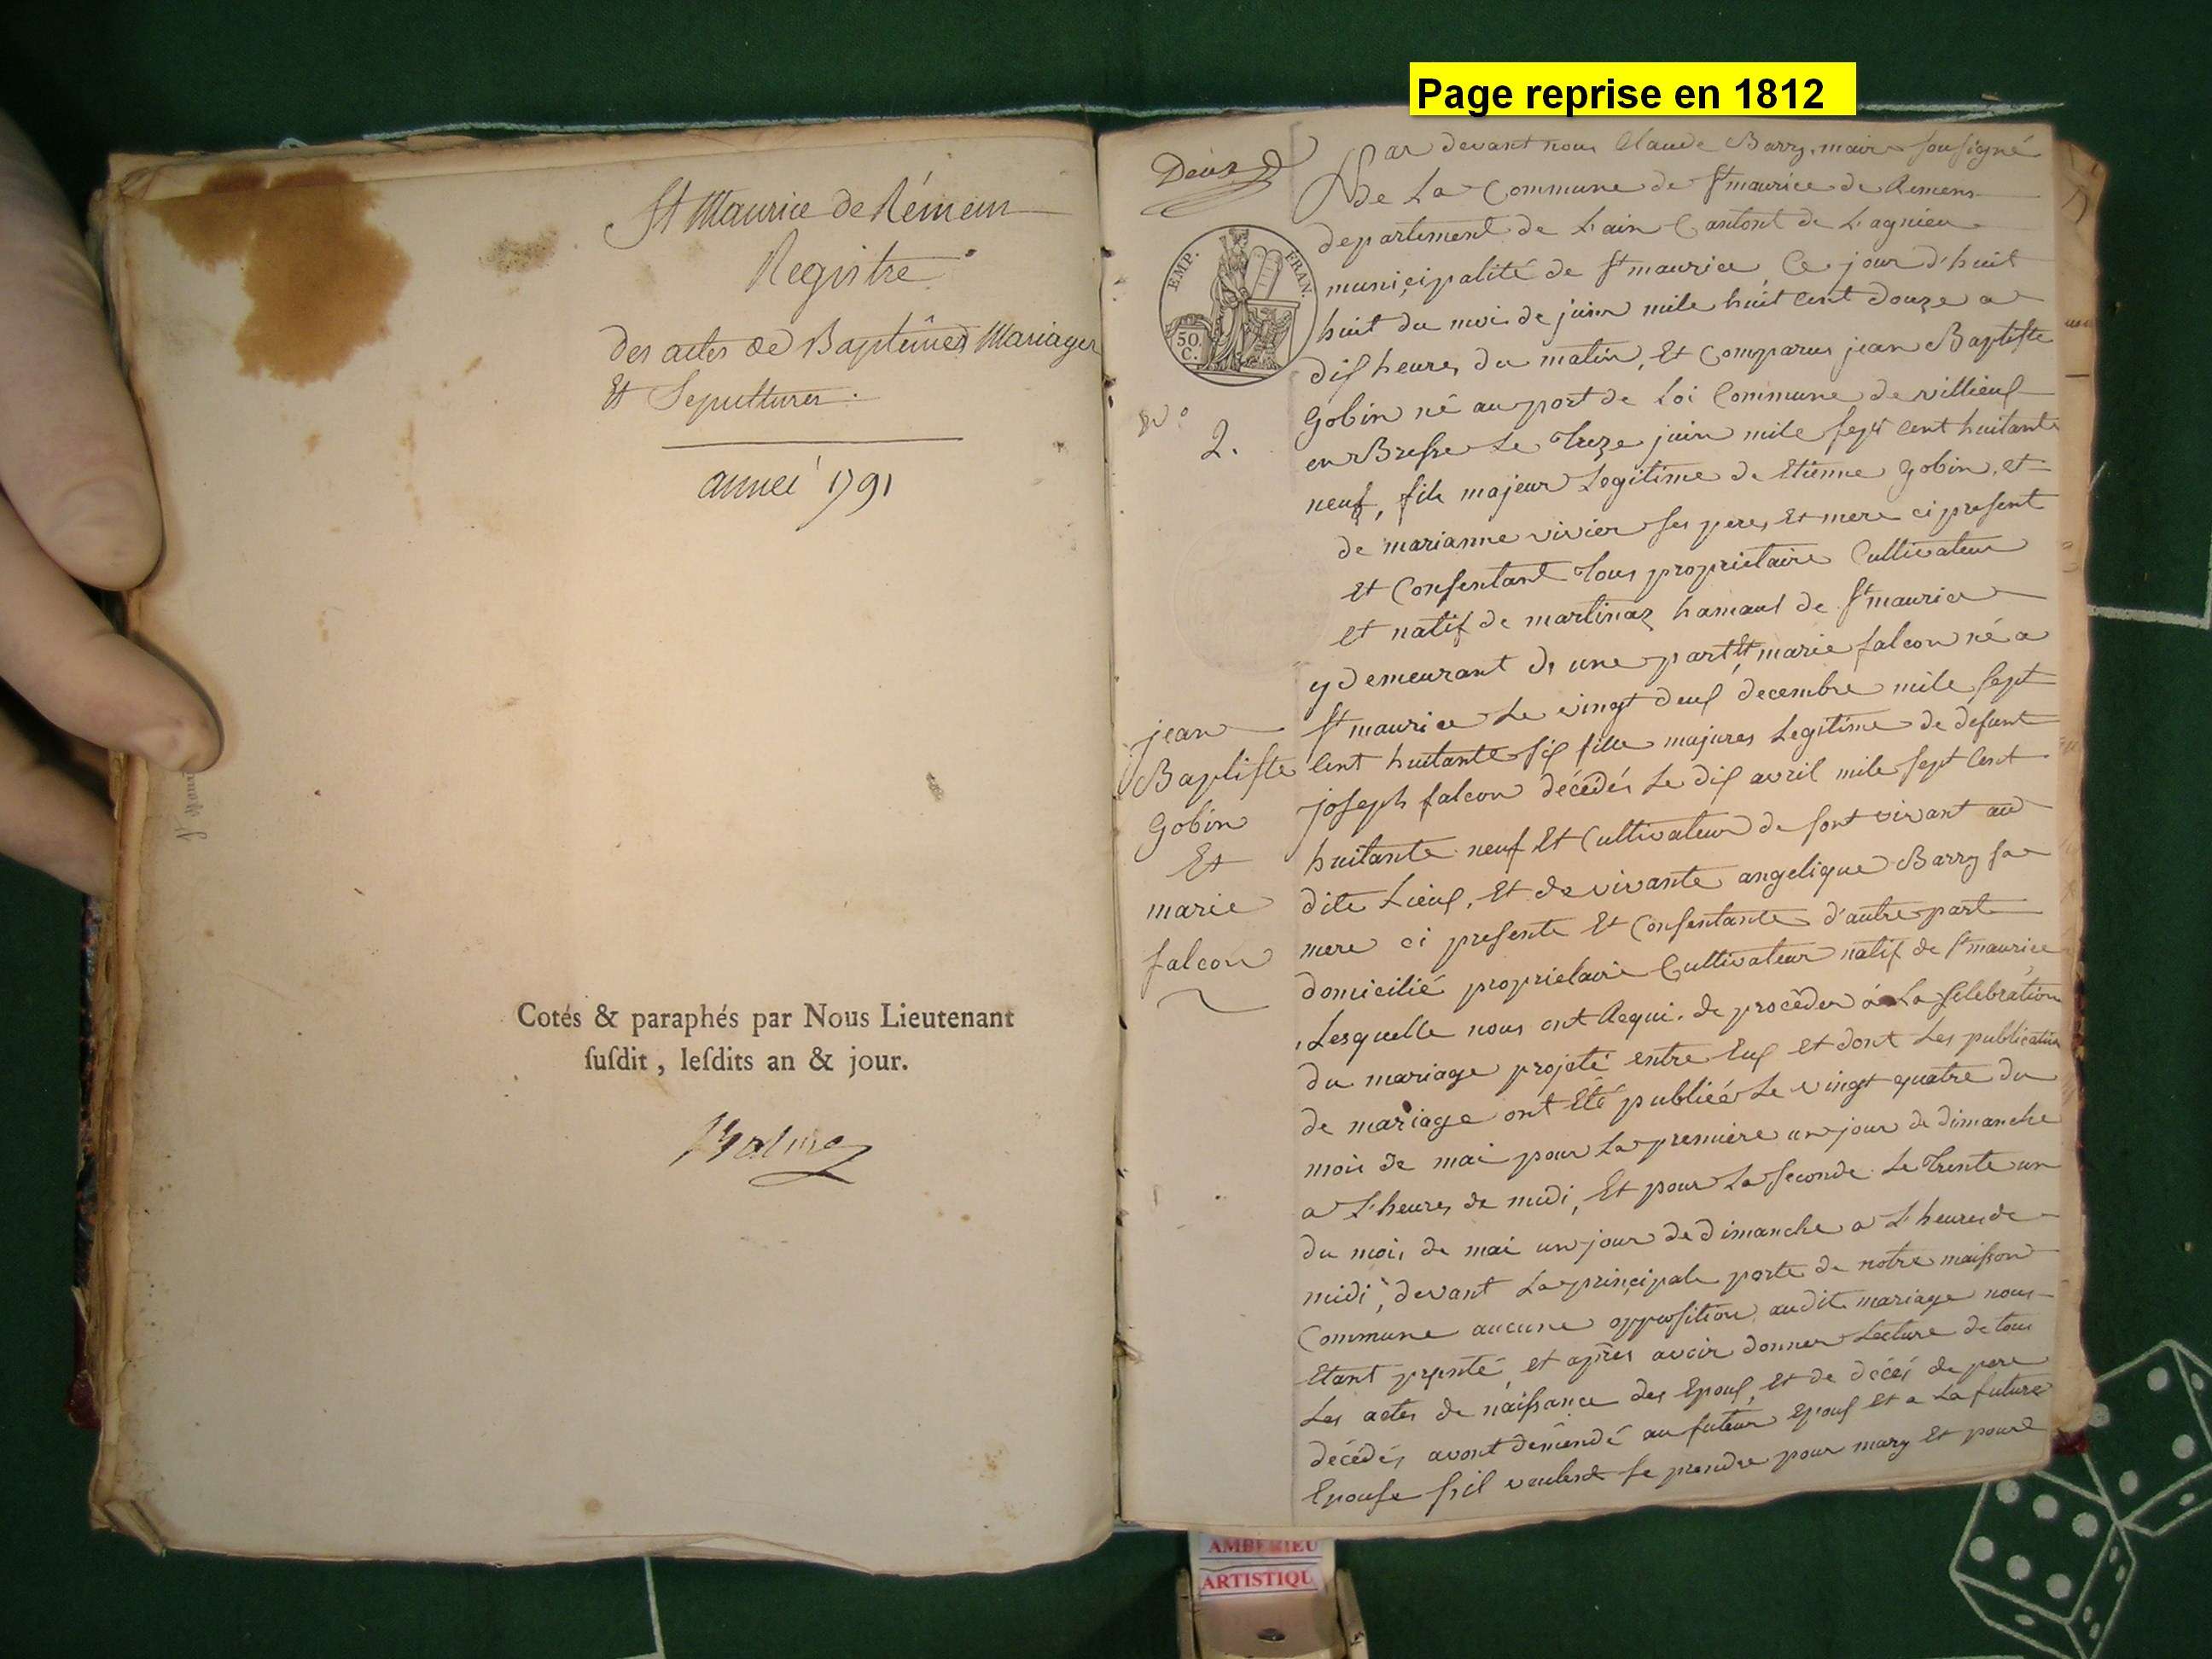 Page reprise en 1812
St Maurice de Rémens
Registre
des actes de Baptêmes Mariages
Et Sepultures.
année 1791
Cotés & paraphés par Nous Lieutenant
ſuſdit, leſdits an & jour.
Deux
EMP. FRAN.
50 C.
N.º
2.
jean
Baptiste
Gobin
Et
marie
falcon
Par devant nous Claude Barry, maire sousigné
de La Commune de St maurice de Remens
departement de L'ain Cantont de Lagnieu
municipalité de St maurice, Ce jour d'huit
huit du moi de juin mile huit Cent douze a
dix heures du matin, Et Comparus jean Baptiste
gobin né au port de Loi Commune de villieux
en Bresse Le Treze juin mile sept Cent huitante
neuf, fils majeur Legitime de Etienne gobin, et
de marianne vivier ses peres Et mere ci present
Et Consentant Tous proprietaire Cultivateur
et natif de martinaz hamaux de St maurice
y demeurant de une part Et marie falcon né a
St maurice Le vingt deux decembre mile sept
Cent huitante six fille majures Legitime de defunt
joseph falcon décédés Le dix avril mile sept Cent
huitante neuf Et Cultivateur de sont vivant au
dite Lieux, Et de vivante angelique Barry sa
mere ci presente Et Consentante d'autre part
domicilié proprietaire Cultivateur natif de St maurice
Lesquelle nous ont Requi. de procéder a La selebration
du mariage projeté entre Eux et dont Les publication
de mariage ont Eté publiée Le vingt quatre du
mois de mai pour La premiere un jour de dimanche
a L'heures de midi, Et pour La seconde Le Trente un
du mois de mai un jour de dimanche a L'heures de
midi, devant La principale porte de notre maison
Commune aucune opposition audite mariage nous
Etant presenté, et apres avoir donner Lecture de tous
Les actes de naissance des Epoux, Et de décés de pere
décédés avont demendé au futeur Epoux Et a La future
Epouse s'il veulent se prendre pour mary Et pour
AMBERIEU
ARTISTIQU